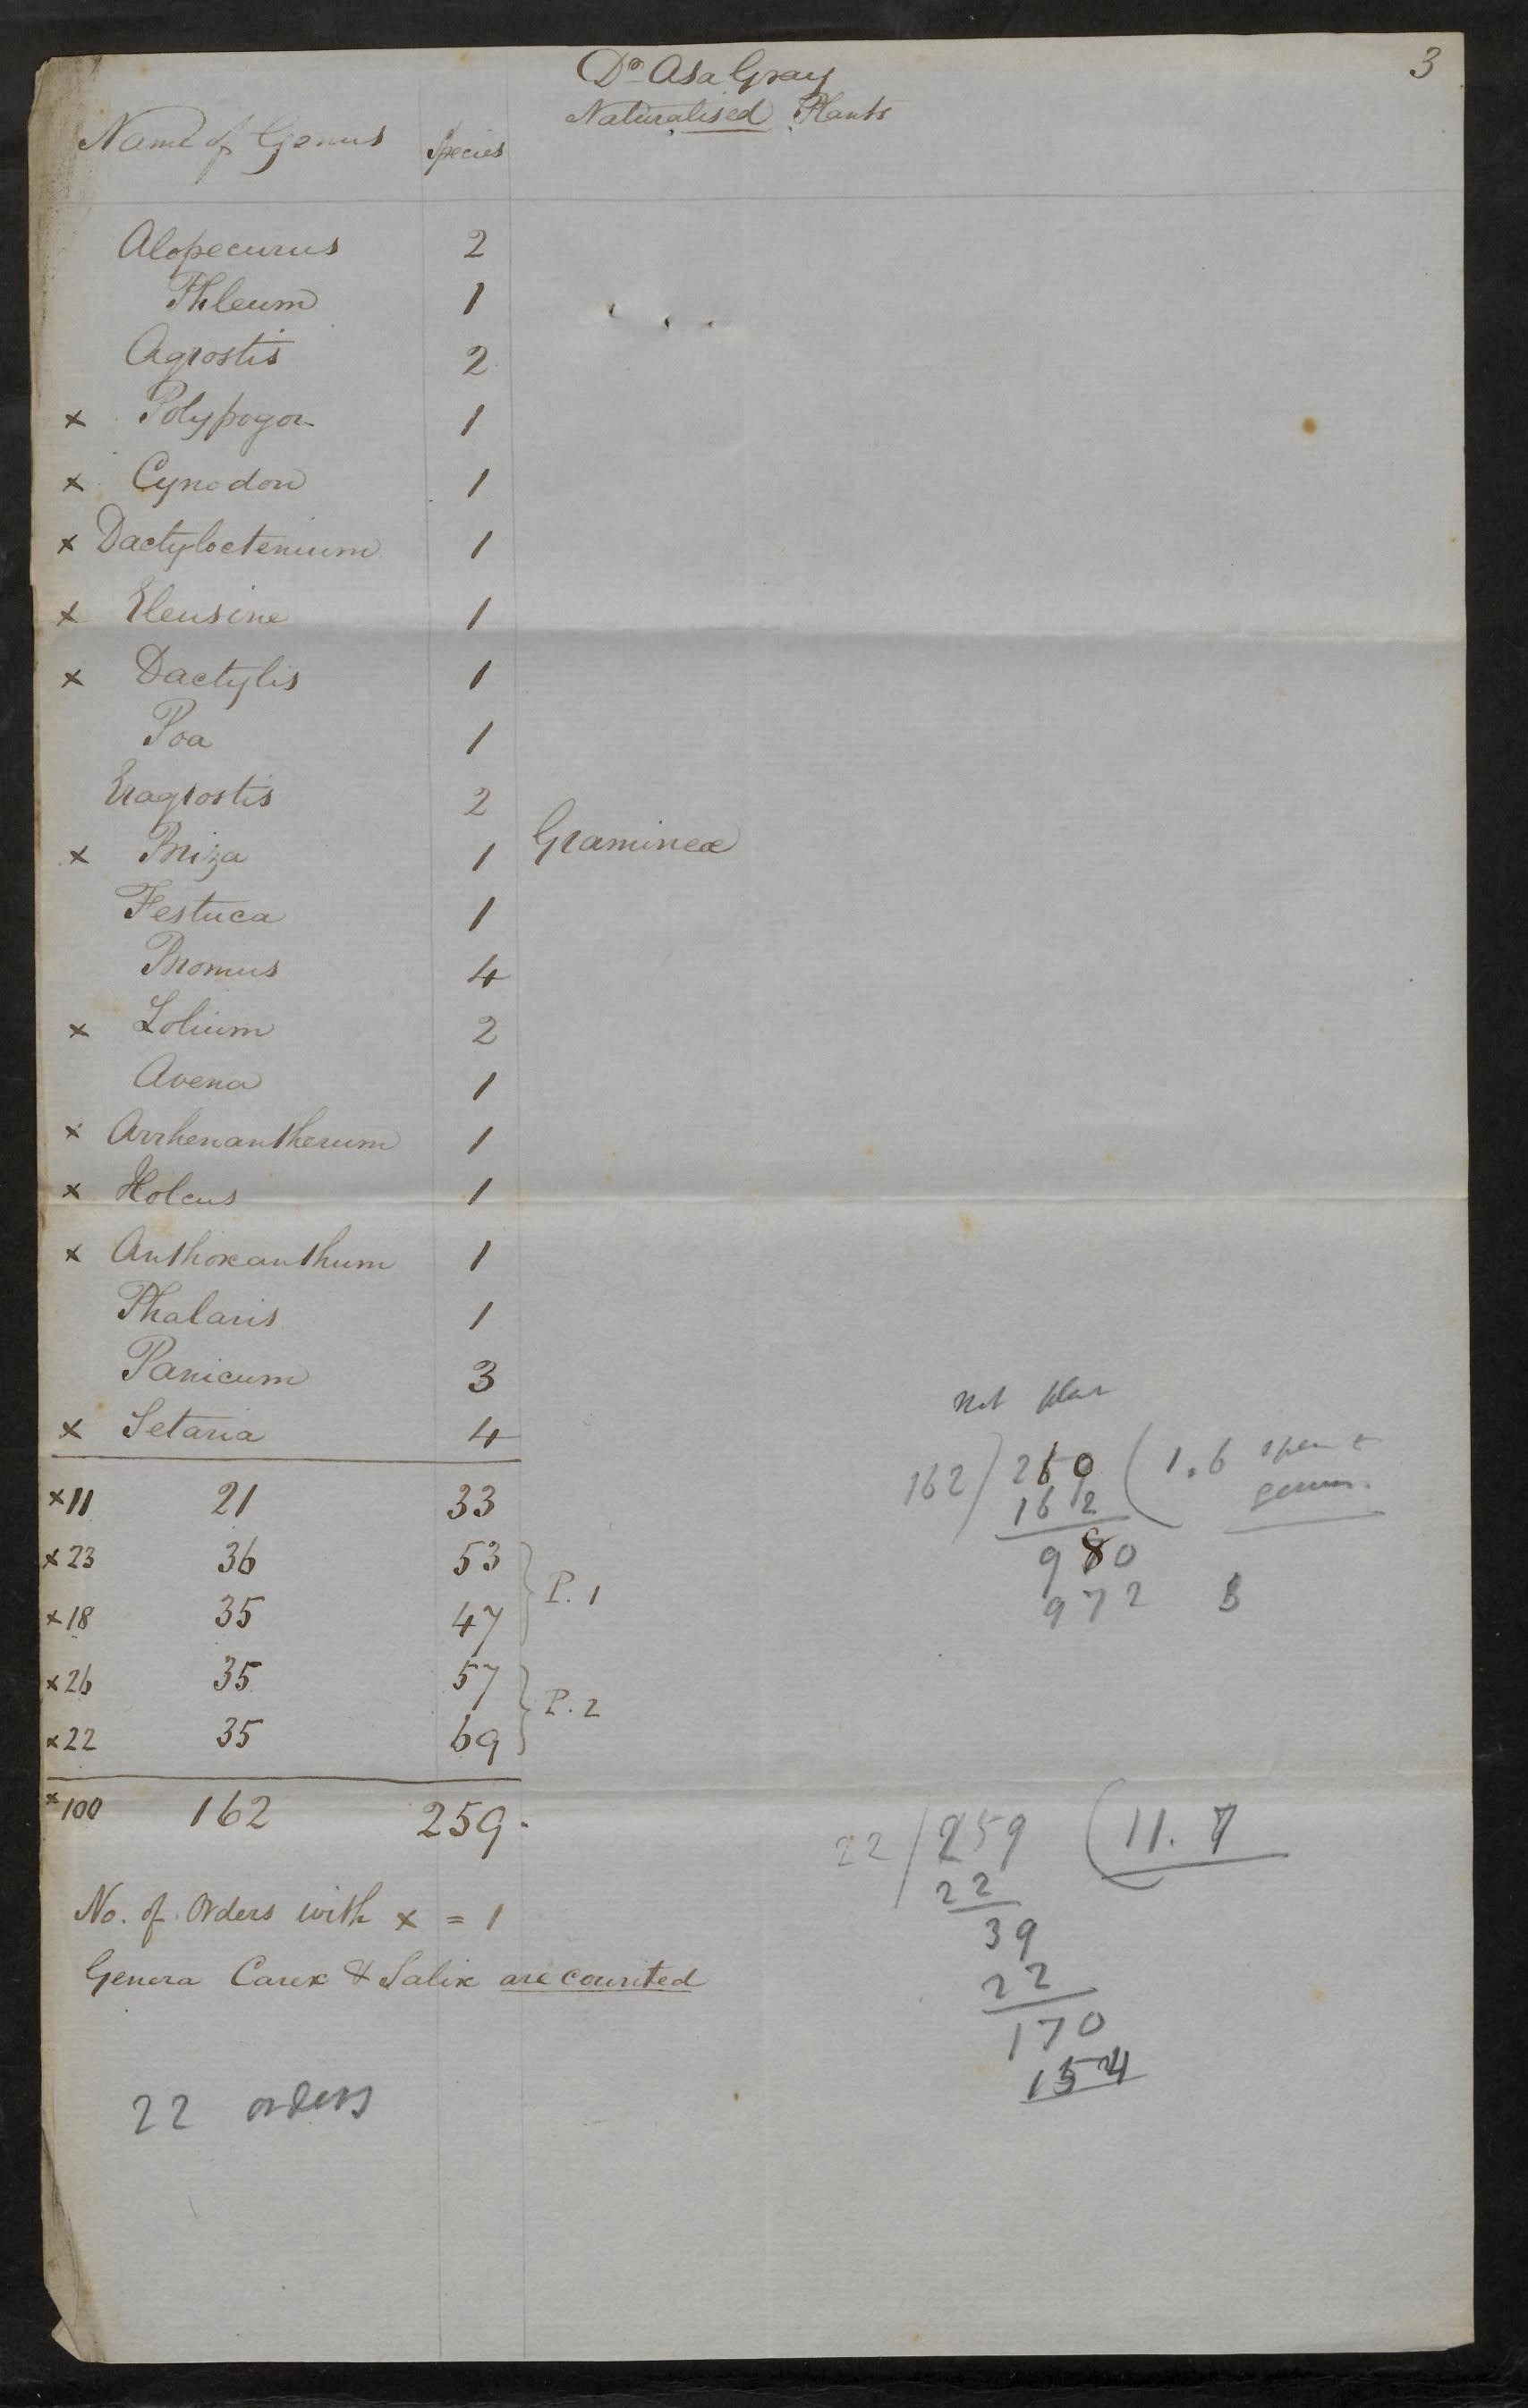 3
Dr Asa Gray
Naturalised Plants
Name of Genus Species
Alopecurus 2
Phleum 1
Agrostis 2
x Polypogon 1
x Cynodon 1
x Dactyloctenium 1
x Eleusine 1
x Dactylis 1
Poa 1
Eragrostis 2
x Briza 1 Gramineæ
Festuca 1
Bromus 4
x Lolium 2
Avena 1
x Arrhenantherum 1
x Holcus 1
x Anthoxanthum 1
Phalaris 1
Panicum 3
x Setaria 4
x11 21 33
x23 36 53
x18 35 47
P. 1
x26 35 57
x22 35 69
P. 2
x100 162 259.
No. of Orders with x = 1
Genera Carex & Salix are counted
22 orders
162) 260 (1.6
genus.
162
980
972
22/ 259 (11.7
22
39
22
170
154